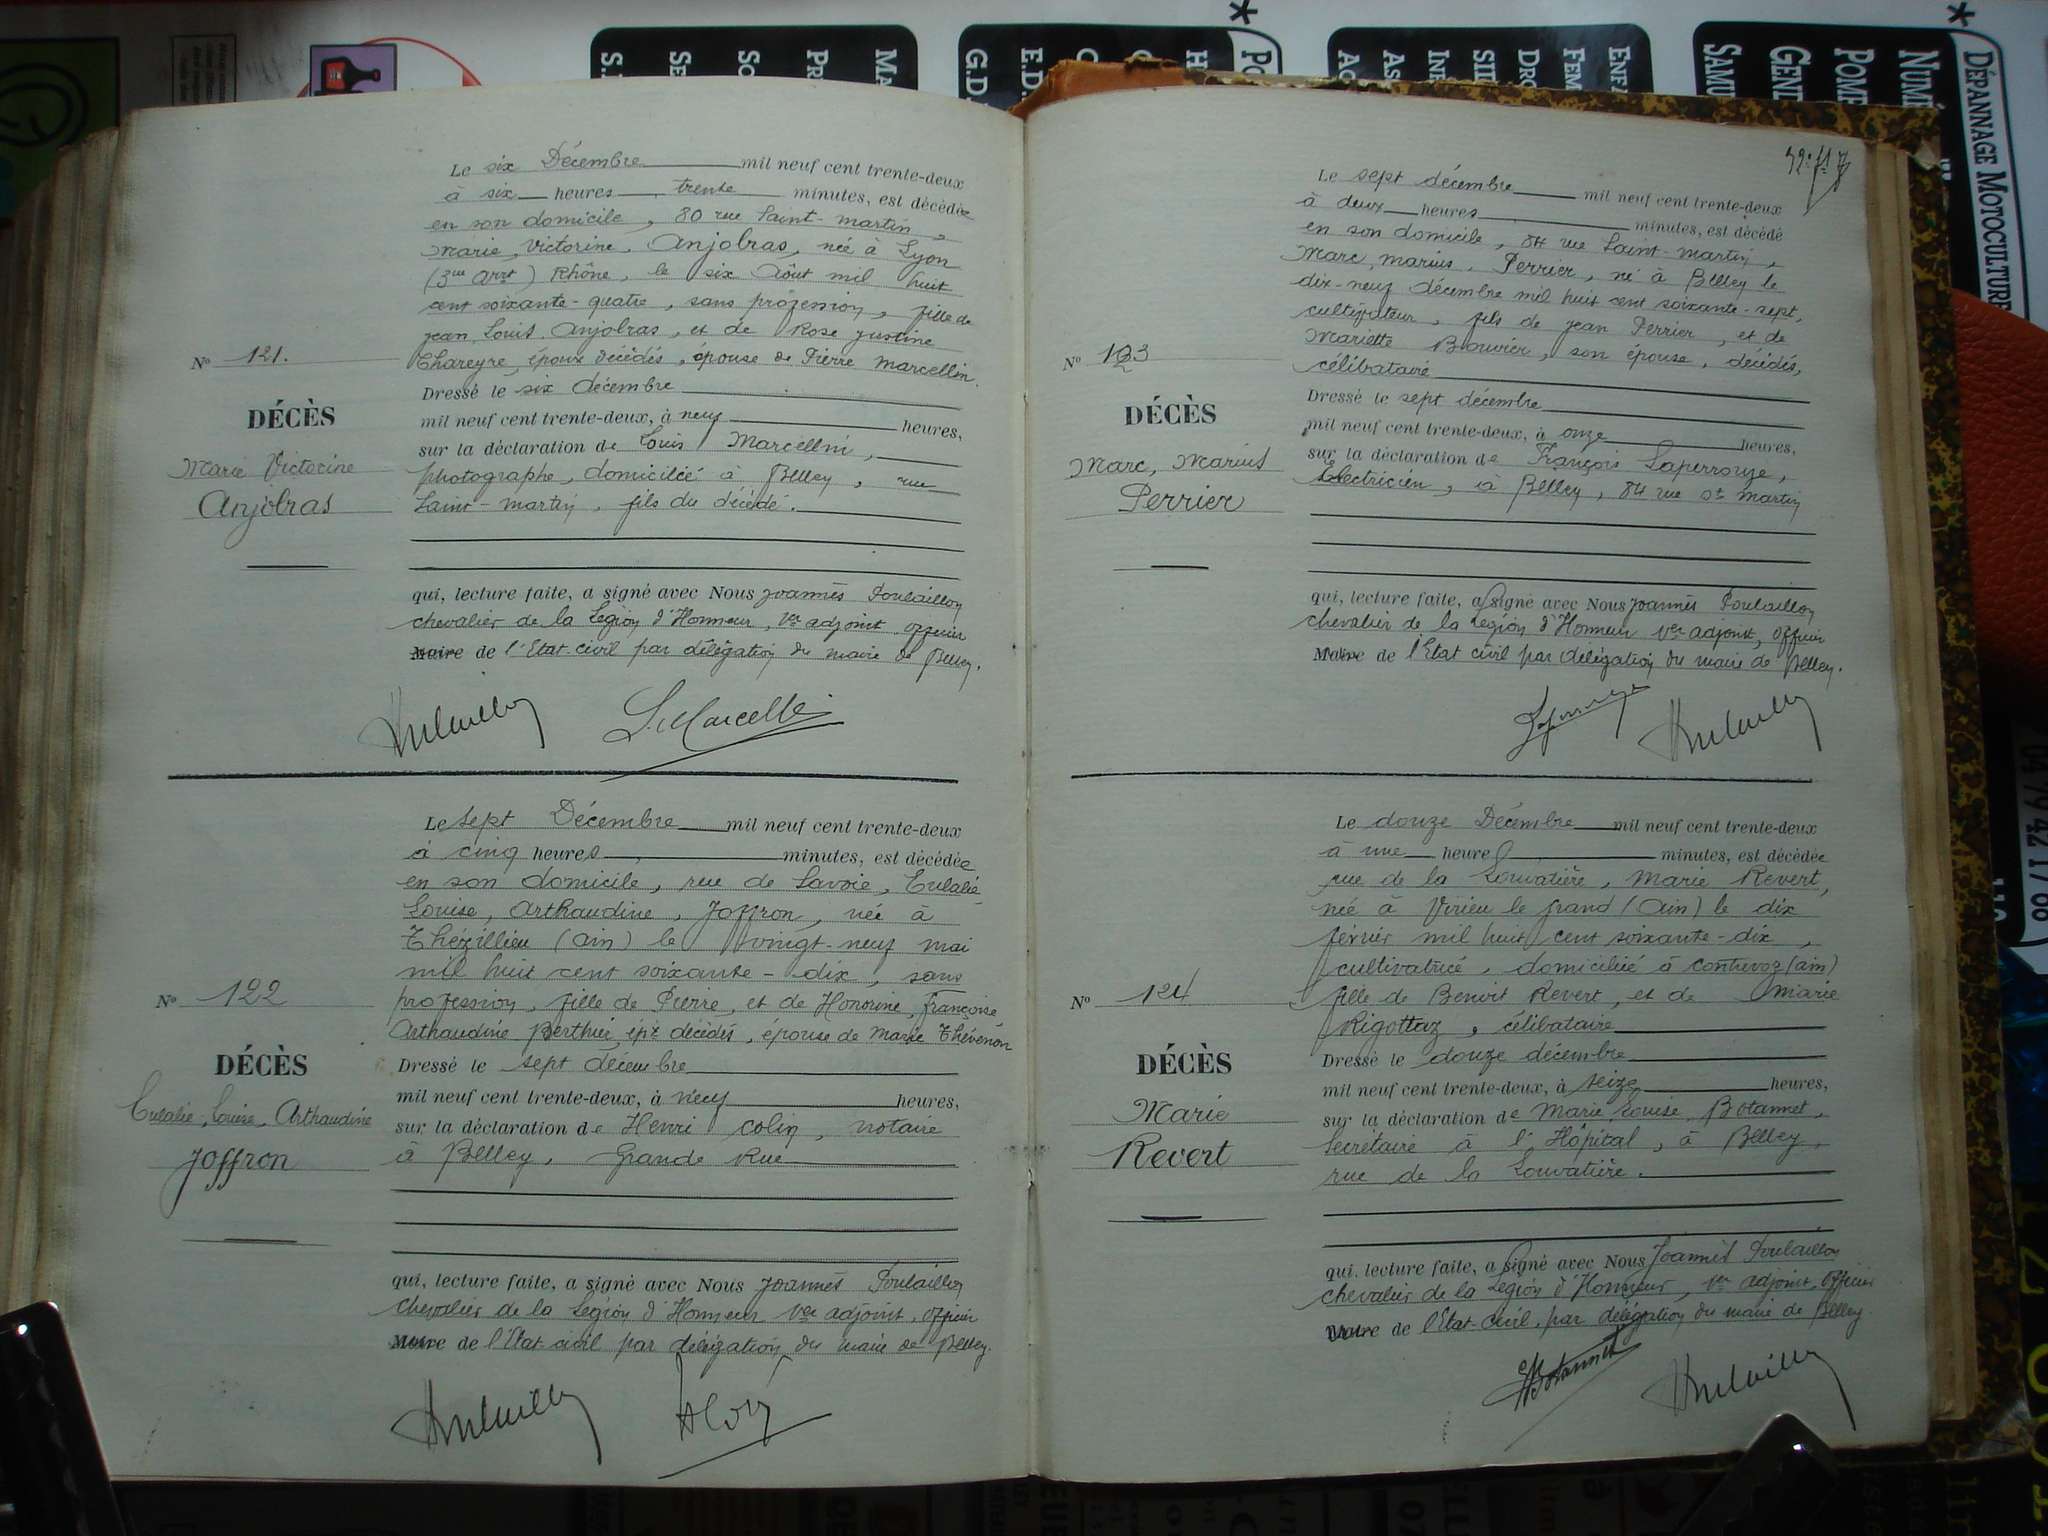 Le six Décembre mil neuf cent trente-deux
à six heures trente minutes, est décédée
en son domicile, 80 rue Saint-Martin,
Marie, Victorine, Anjolras, née à Lyon
(3me Arrt) Rhône, le six Août mil huit
cent soixante-quatre, sans profession, fille de
Jean Louis Anjolras, et de Rose Justine
Chareyre, époux décédés, épouse de Pierre Marcellin.
Nº 121.
DÉCÈS
Marie Victorine
Anjolras
Dressé le six décembre
mil neuf cent trente-deux, à neuf heures,
sur la déclaration de Louis Marcellin,
photographe, domicilié à Belley, rue
Saint-Martin, fils du décédé.
qui, lecture faite, a signé avec Nous Joannès Poulaillon
chevalier de la Légion d'Honneur, 1er adjoint, officier
Maire de l'Etat-civil par délégation du maire de Belley.
L. Marcellin
Le sept Décembre mil neuf cent trente-deux
à cinq heures minutes, est décédée
en son domicile, rue de Savoie, Eulalie
Louise, Arthaudine, Joffron, née à
Thézillieu (Ain) le vingt-neuf mai
mil huit cent soixante-dix, sans
profession, fille de Pierre, et de Honorine, françoise
Arthaudine Berthier, épx décédés, épouse de Marie Thévenon
Nº 122
DÉCÈS
Eulalie, Louise, Arthaudine
Joffron
Dressé le sept décembre
mil neuf cent trente-deux, à neuf heures,
sur la déclaration de Henri Colin, notaire
à Belley, Grande Rue
qui, lecture faite, a signé avec Nous Joannès Poulaillon
Chevalier de la Légion d'Honneur 1er adjoint, officier
Maire de l'Etat-civil par délégation du maire de Belley.
Le sept décembre mil neuf cent trente-deux
à deux heures minutes, est décédé
en son domicile, 84 rue Saint-Martin,
Marc, Marius, Perrier, né à Belley le
dix-neuf décembre mil huit cent soixante-sept,
cultivateur, fils de Jean Perrier, et de
Mariette Bouvier, son épouse, décédés,
célibataire
Nº 123
DÉCÈS
Marc, Marius
Perrier
Dressé le sept décembre
mil neuf cent trente-deux, à onze heures,
sur la déclaration de François Laperrouze,
Electricien, à Belley, 84 rue St Martin
qui, lecture faite, a signé avec Nous Joannès Poulaillon
chevalier de la Légion d'Honneur 1er adjoint, officier
Maire de l'Etat civil par délégation du maire de Belley.
Le douze Décembre mil neuf cent trente-deux
à une heure minutes, est décédée
rue de la Louvatière, Marie Revert,
née à Virieu le grand (Ain) le dix
février mil huit cent soixante-dix,
cultivatrice, domiciliée à Contrevoz (Ain)
fille de Benoit Revert, et de Marie
Rigottaz, célibataire
Nº 124
DÉCÈS
Marie
Revert
Dressé le douze décembre
mil neuf cent trente-deux, à seize heures,
sur la déclaration de Marie Louise Botannet,
Secrétaire à l'Hôpital, à Belley,
rue de la Louvatière.
qui, lecture faite, a signé avec Nous Joannès Poulaillon
chevalier de la Légion d'Honneur, 1er adjoint, officier
Maire de l'Etat-civil, par délégation du maire de Belley.
DÉPANNAGE MOTOCULTURE
NUMÉ
POMP
GENI
SAMU